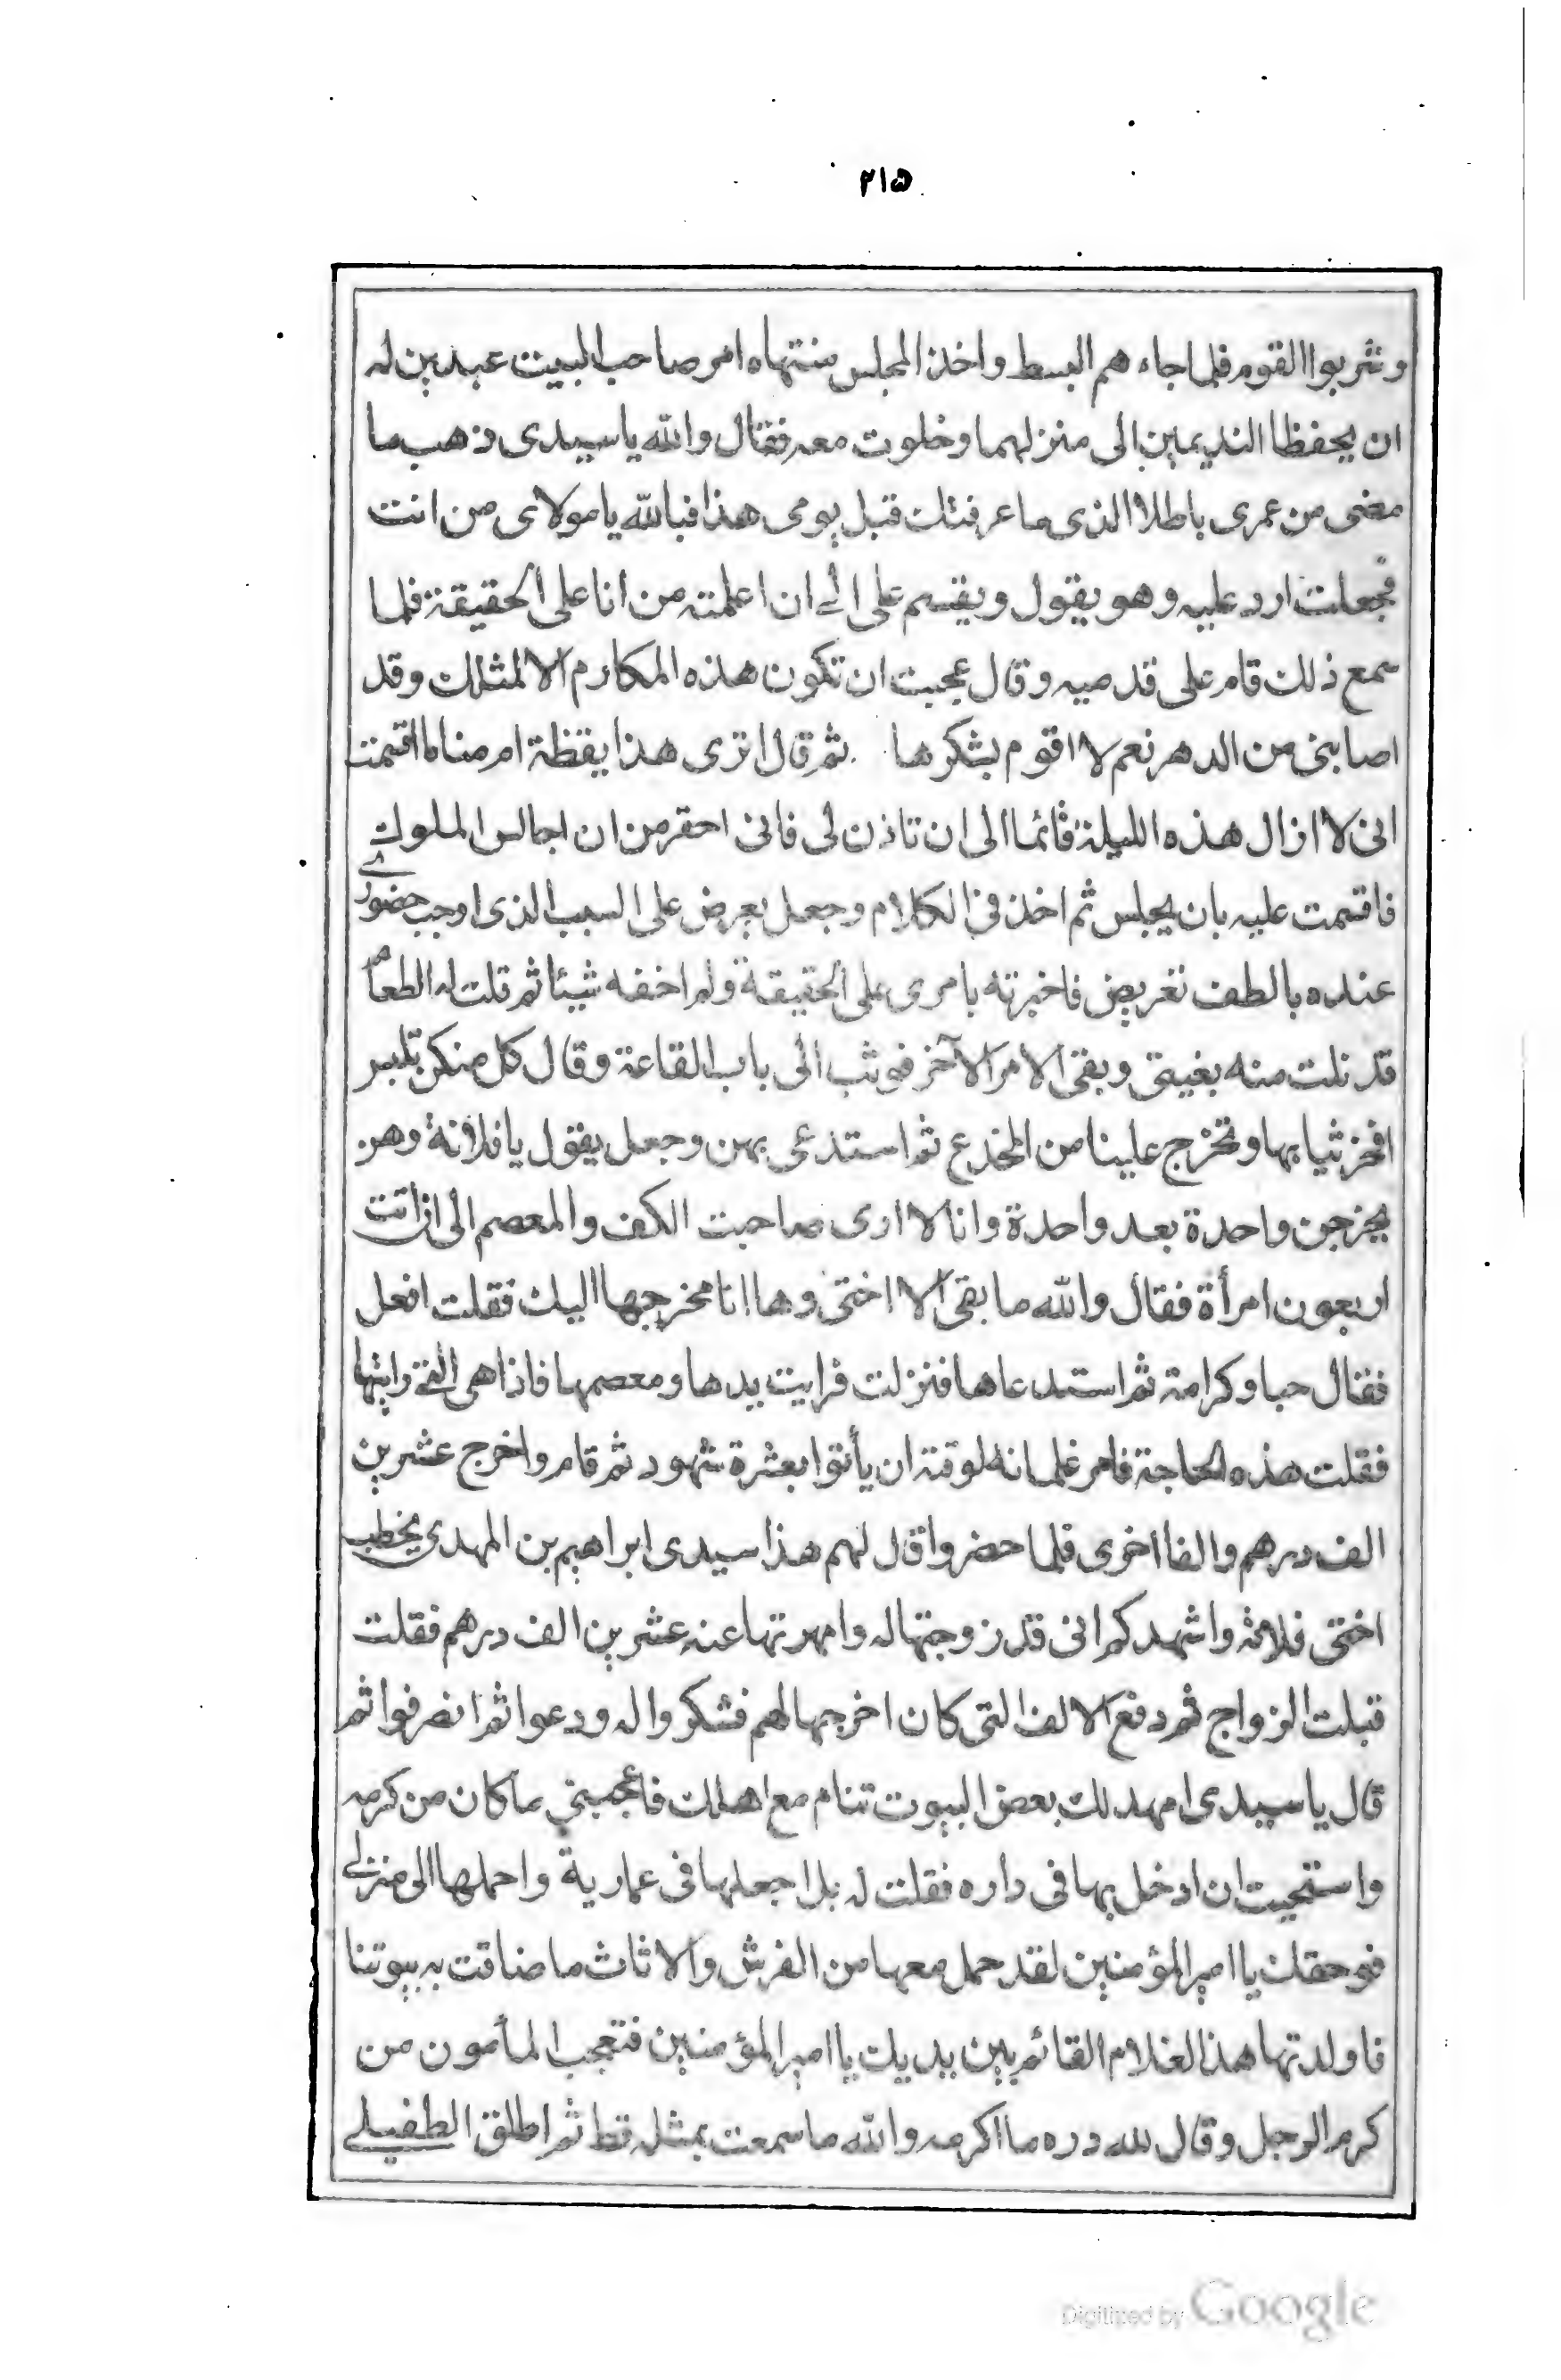 ٢١٥
وشربوا القوم فلما جاء هم البسط واخذ المجلس منتهاه امر صاحب البيت عبدين له
ان يحفظا النديمين الى منزلهما وخلوت معه فقال والله يا سيدى ذهب ما
مضى من عمرى باطلا الذى ما عرفتك قبل يومى هذا فبالله يا مولاى من انت
فجعلت ارد عليه وهو يقول ويقسم على الى ان اعلمته من انا على الحقيقة فلما
سمع ذلك قام على قدميه وقال عجبت ان تكون هذه المكارم الا لمثلك وقد
اصابنى من الدهر نعم لا اقوم بشكرها ثم قال اترى هذا يقظة ام مناما اقسمت
انى لا ازال هذه الليلة قائما الى ان تاذن لى فانى احقر من ان اجالس الملوك
فاقسمت عليه بان يجلس ثم اخذ فى الكلام وجعل يعرض على السبب الذى اوجب حضورى
عنده بالطف تعريض فاخبرته بامرى على الحقيقة ولم اخفه شيئا ثم قلت له الطعام
قد نلت منه بغيتى وبقى الامر الآخر فوثب الى باب القاعة وقال كل منكن تلبس
افخر ثيابها وتخرج علينا من المخدع ثم استدعى بهن وجعل يقول يا فلانة وهن
يخرجن واحدة بعد واحدة وانا لا ارى صاحبت الكف والمعصم الى ان اتت
اربعون امرأة فقال والله ما بقى الا اختى وها انا مخرجها اليك فقلت افعل
فقال حبا وكرامة ثم استدعاها فنزلت فرايت يدها ومعصمها فاذا هى التى رايتها
فقلت هذه الحاجة فامر غلمانه لوقته ان يأتوا بعشرة شهود ثم قام واخرج عشرين
الف درهم والفا اخرى فلما حضروا قال لهم هذا سيدى ابراهيم بن المهدى يخطب
اختى فلانة واشهدكم انى قد زوجتها له وامهرتها عنه عشرين الف درهم فقلت
قبلت الزواج ثم دفع الالف التى كان اخرجها لهم فشكروا له ودعوا ثم انصرفوا ثم
قال يا سيدى امهد لك بعض البيوت تنام مع اهلك فاعجبنى ما كان من كرمه
واستحيت ان ادخل بها فى داره فقلت له بل اجعلها فى عمارية واحملها الى منزلى
فوحقك يا امير المؤمنين لقد حمل معها من الفرش والاثاث ما ضاقت به بيوتنا
فاولدتها هذا الغلام القائم بين يديك يا امير المؤمنين فتعجب المأمون من
كرم الرجل وقال لله دره ما اكرمه والله ما سمعت بمثله قط ثم اطلق الطفيلى
Digitized by Google